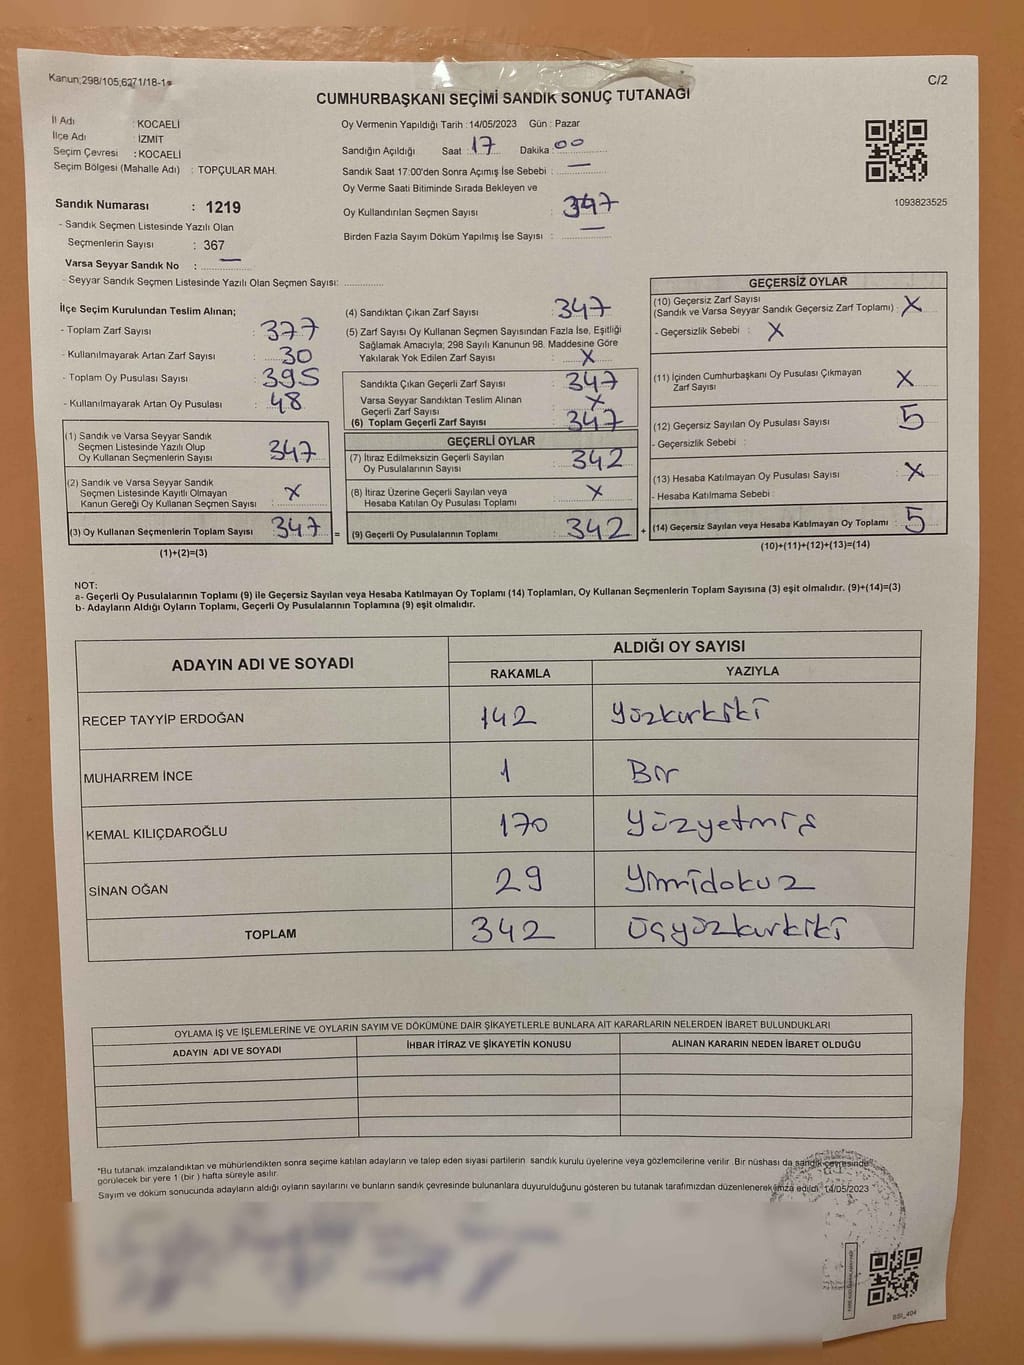 Kanun;298/105;6271/18-1
C/2
CUMHURBAŞKANI SEÇİMİ SANDIK SONUÇ TUTANAĞI
İl Adı : KOCAELİ
İlçe Adı : İZMİT
Seçim Çevresi : KOCAELİ
Seçim Bölgesi (Mahalle Adı) : TOPÇULAR MAH.
Sandık Numarası : 1219
- Sandık Seçmen Listesinde Yazılı Olan
Seçmenlerin Sayısı : 367
Varsa Seyyar Sandık No : —
- Seyyar Sandık Seçmen Listesinde Yazılı Olan Seçmen Sayısı:
Oy Vermenin Yapıldığı Tarih :14/05/2023 Gün : Pazar
Sandığın Açıldığı Saat : 17 Dakika : 00
Sandık Saat 17:00'den Sonra Açımış İse Sebebi : —
Oy Verme Saati Bitiminde Sırada Bekleyen ve
Oy Kullandırılan Seçmen Sayısı : 347
Birden Fazla Sayım Döküm Yapılmış İse Sayısı : —
1093823525
İlçe Seçim Kurulundan Teslim Alınan;
- Toplam Zarf Sayısı : 377
- Kullanılmayarak Artan Zarf Sayısı : 30
- Toplam Oy Pusulası Sayısı : 395
- Kullanılmayarak Artan Oy Pusulası : 48
(1) Sandık ve Varsa Seyyar Sandık
Seçmen Listesinde Yazılı Olup
Oy Kullanan Seçmenlerin Sayısı : 347
(2) Sandık ve Varsa Seyyar Sandık
Seçmen Listesinde Kayıtlı Olmayan
Kanun Gereği Oy Kullanan Seçmen Sayısı : X
(3) Oy Kullanan Seçmenlerin Toplam Sayısı : 347 =
(1)+(2)=(3)
(4) Sandıktan Çıkan Zarf Sayısı : 347
(5) Zarf Sayısı Oy Kullanan Seçmen Sayısından Fazla İse, Eşitliği
Sağlamak Amacıyla; 298 Sayılı Kanunun 98. Maddesine Göre
Yakılarak Yok Edilen Zarf Sayısı : X
Sandıkta Çıkan Geçerli Zarf Sayısı : 347
Varsa Seyyar Sandıktan Teslim Alınan
Geçerli Zarf Sayısı : X
(6) Toplam Geçerli Zarf Sayısı : 347
GEÇERLİ OYLAR
(7) İtiraz Edilmeksizin Geçerli Sayılan
Oy Pusulalarının Sayısı : 342
(8) İtiraz Üzerine Geçerli Sayılan veya
Hesaba Katılan Oy Pusulası Toplamı : X
(9) Geçerli Oy Pusulalarının Toplamı : 342 +
GEÇERSİZ OYLAR
(10) Geçersiz Zarf Sayısı
(Sandık ve Varsa Seyyar Sandık Geçersiz Zarf Toplamı) : X
- Geçersizlik Sebebi : X
(11) İçinden Cumhurbaşkanı Oy Pusulası Çıkmayan
Zarf Sayısı : X
(12) Geçersiz Sayılan Oy Pusulası Sayısı : 5
- Geçersizlik Sebebi :
(13) Hesaba Katılmayan Oy Pusulası Sayısı : X
- Hesaba Katılmama Sebebi :
(14) Geçersiz Sayılan veya Hesaba Katılmayan Oy Toplamı : 5
(10)+(11)+(12)+(13)=(14)
NOT:
a- Geçerli Oy Pusulalarının Toplamı (9) ile Geçersiz Sayılan veya Hesaba Katılmayan Oy Toplamı (14) Toplamları, Oy Kullanan Seçmenlerin Toplam Sayısına (3) eşit olmalıdır. (9)+(14)=(3)
b- Adayların Aldığı Oyların Toplamı, Geçerli Oy Pusulalarının Toplamına (9) eşit olmalıdır.
ADAYIN ADI VE SOYADI ALDIĞI OY SAYISI
RAKAMLA YAZIYLA
RECEP TAYYİP ERDOĞAN 142 Yüzkırkiki
MUHARREM İNCE 1 Bir
KEMAL KILIÇDAROĞLU 170 Yüzyetmiş
SİNAN OĞAN 29 Yirmidokuz
TOPLAM 342 Üçyüzkırkiki
OYLAMA İŞ VE İŞLEMLERİNE VE OYLARIN SAYIM VE DÖKÜMÜNE DAİR ŞİKAYETLERLE BUNLARA AİT KARARLARIN NELERDEN İBARET BULUNDUKLARI
ADAYIN ADI VE SOYADI İHBAR İTİRAZ VE ŞİKAYETİN KONUSU ALINAN KARARIN NEDEN İBARET OLDUĞU
*Bu tutanak imzalandıktan ve mühürlendikten sonra seçime katılan adayların ve talep eden siyasi partilerin sandık kurulu üyelerine veya gözlemcilerine verilir .Bir nüshası da sandık çevresinde
görülecek bir yere 1 (bir ) hafta süreyle asılır.
Sayım ve döküm sonucunda adayların aldığı oyların sayılarını ve bunların sandık çevresinde bulunanlara duyurulduğunu gösteren bu tutanak tarafımızdan düzenlenerek imza edildi. 14/05/2023
BSI_404